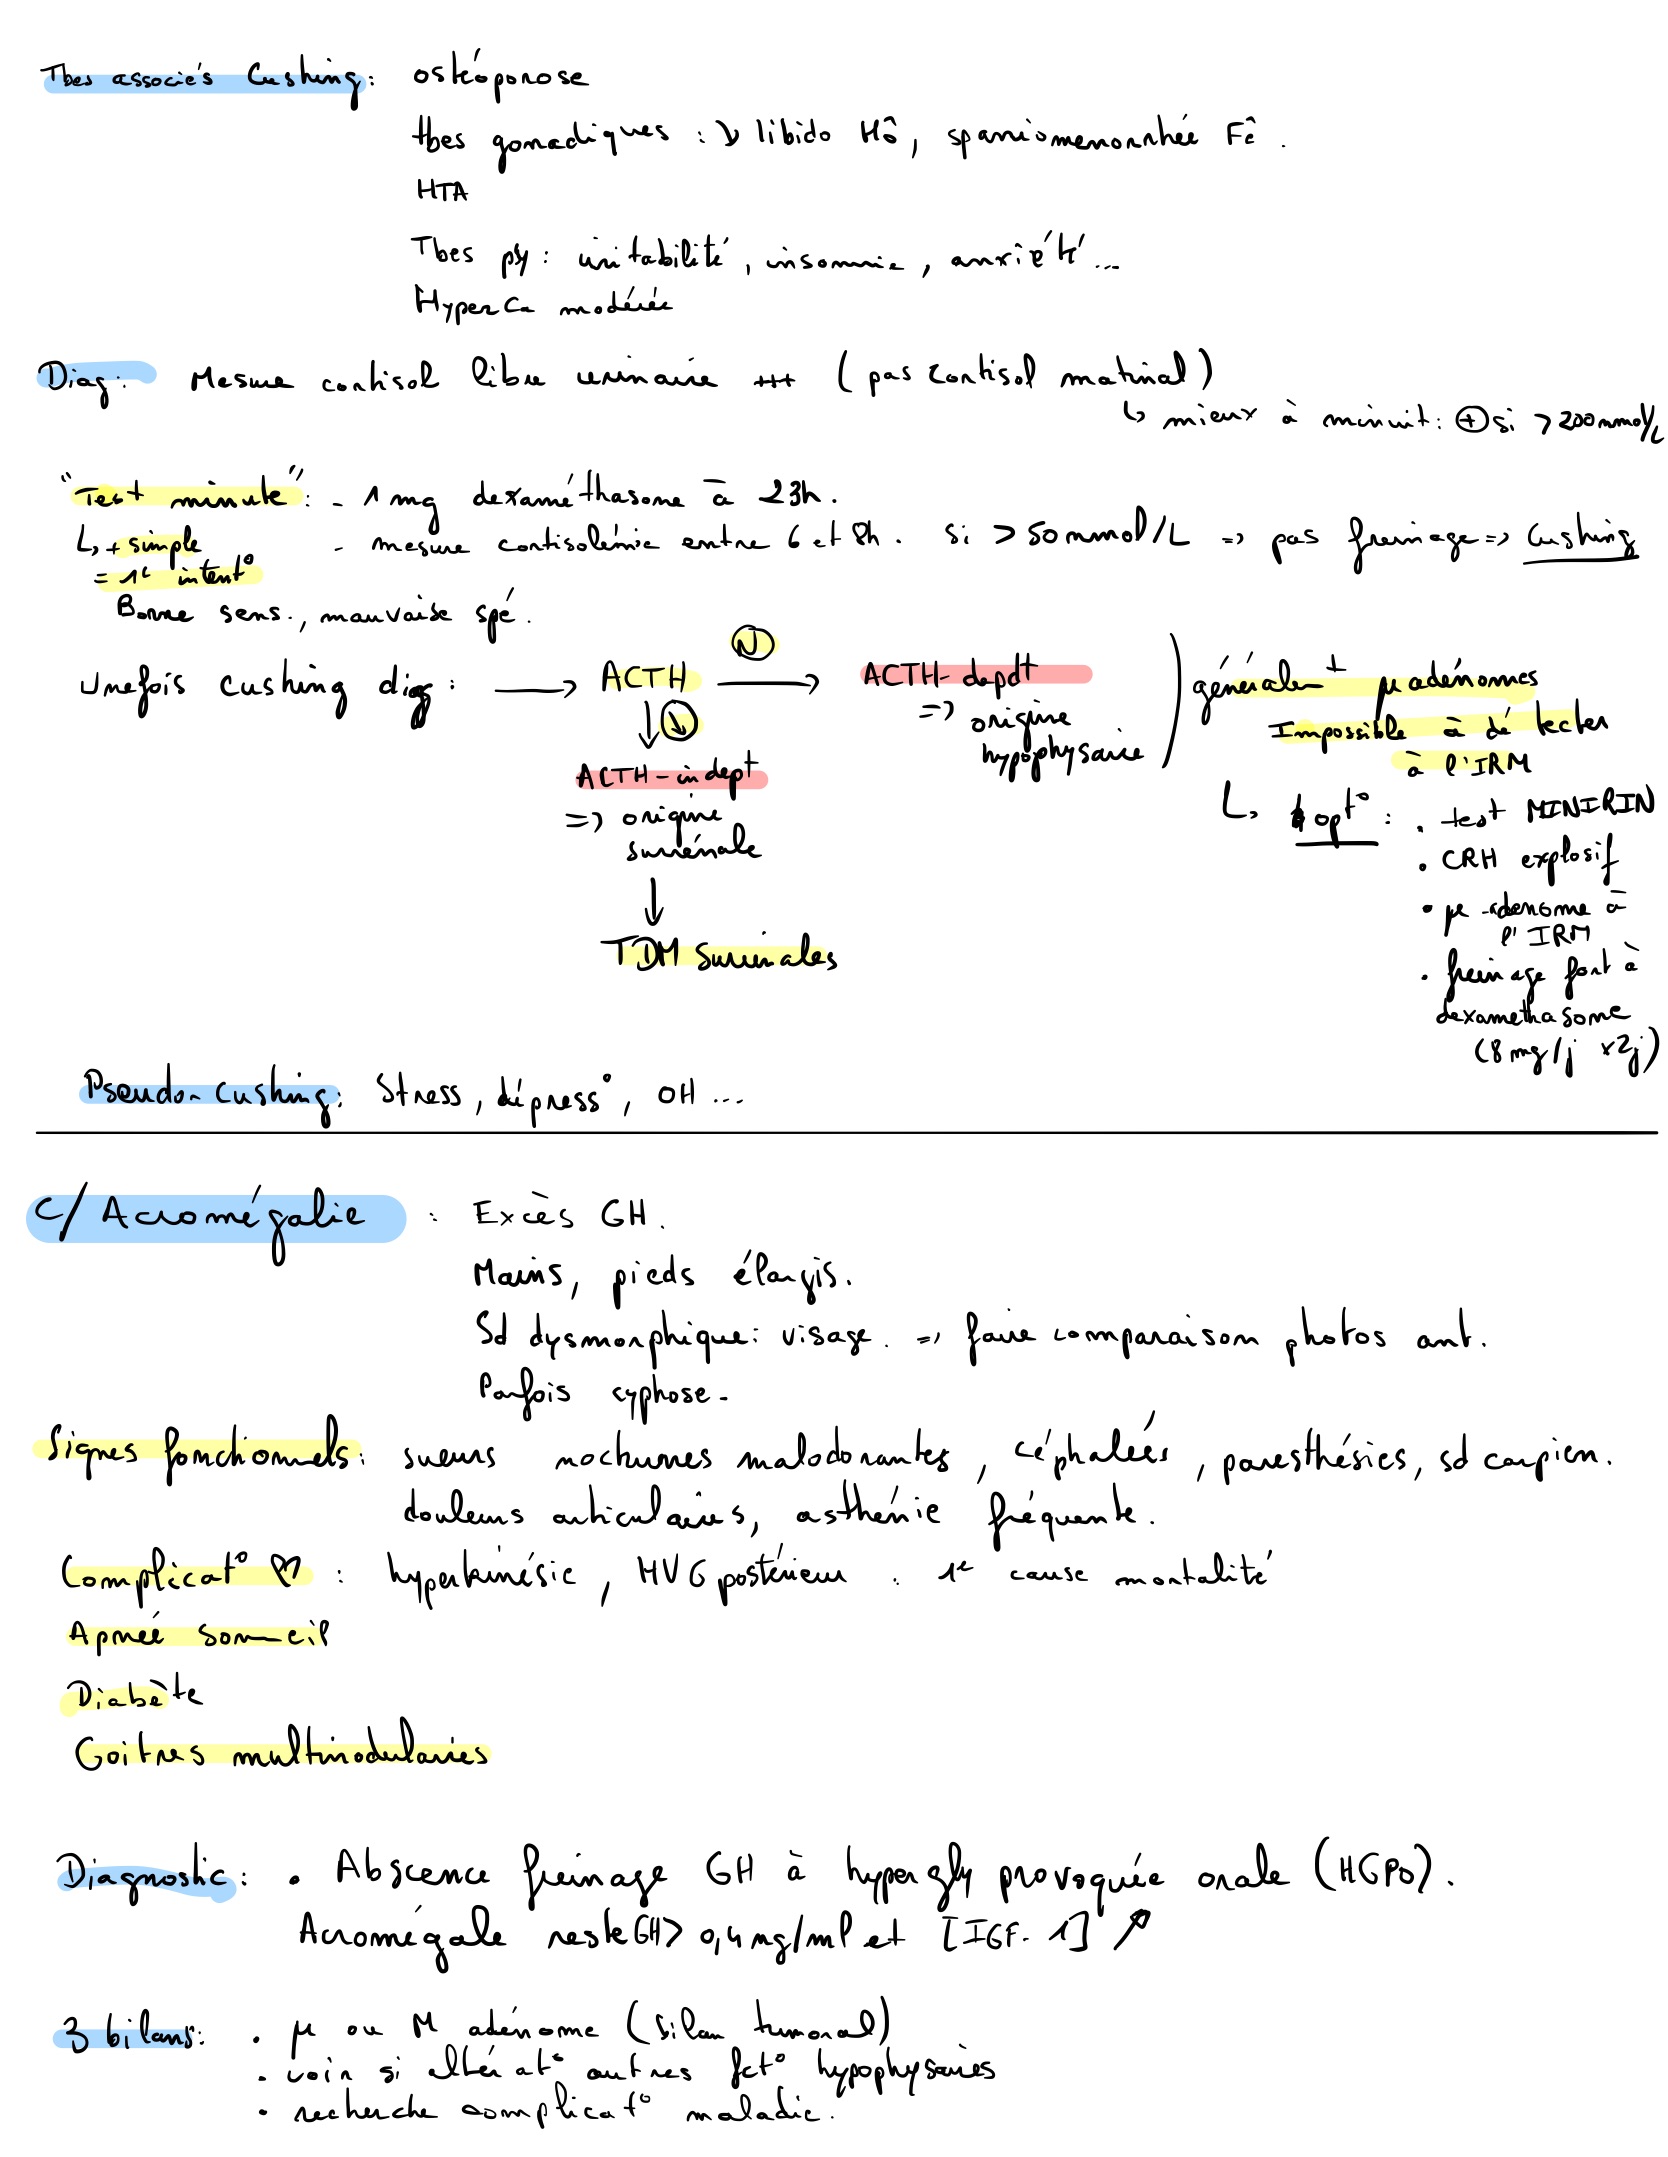 Tbes associés Cushing : ostéoporose
tbes gonadiques : ↘ libido Hô, spaniomenorrhée Fê.
HTA
Tbes psy : irritabilité, insomnie, anxiété...
HyperCa modérée
Diag : Mesure cortisol libre urinaire +++ (pas cortisol matinal)
↳ mieux à minuit : ⊕ si > 200 nmol/L
"Test minute" : - 1 mg dexaméthasone à 23h.
↳ + simple - mesure cortisolémie entre 6 et 8h. si > 50 nmol/L => pas freinage => Cushing
= 1e intent°
Bonne sens., mauvaise spé.
Une fois cushing diag : → ACTH → N ACTH-depdt
=> origine
hypophysaire
) généralemt µadénomes
Impossible à détecter
à l'IRM
↓ ↘
ACTH-indept
=> origine
surrénale
↓
TDM surrénales
↳ 4 opt° : . test MINIRIN
. CRH explosif
. µ-adenome à
l'IRM
. freinage fort à
dexamethasone
(8mg/j x2j)
Pseudo-cushing : Stress, dépress°, OH ...
C/ Acromégalie : Excès GH.
Mains, pieds élargis.
Sd dysmorphique : visage. => faire comparaison photos ant.
Parfois cyphose.
Signes fonctionnels : sueurs nocturnes malodorantes, céphalées, paresthésies, sd carpien.
douleurs articulaires, asthénie fréquente.
Complicat° ♡ : hyperkinésie, HVG postérieur. 1e cause mortalité
Apnée sommeil
Diabète
Goitres multinodulaires
Diagnostic : . Abscence freinage GH à hypergly provoquée orale (HGPO).
Acromégale reste GH > 0,4 ng/ml et [IGF-1] ↗
3 bilans : . µ ou M adénome (bilan tumoral)
. voir si altérat° autres fct° hypophysaires
. recherche complicat° maladie.